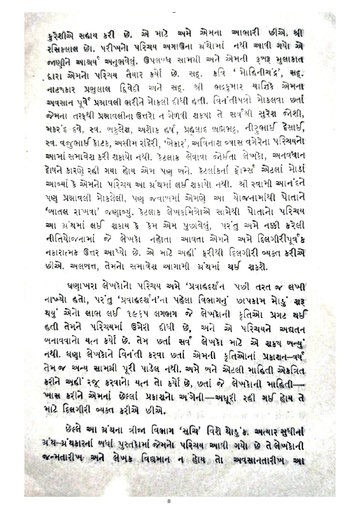 કુરેશીએ સહાય કરી છે. એ માટે અમે એમના આભારી છીએ. શ્રી
રસિકલાલ છો. પરીખનો પરિચય અગાઉના ગ્રંથોમાં નથી આવી ગયો એ
જાણીને આશ્ચર્ય અનુભવેલું. ઉપલબ્ધ સામગ્રી અને એમની રૂબરૂ મુલાકાત
દ્વારા એમનો પરિચય તૈયાર કર્યો છે. સદ્. કવિ ‘મોહિનીચંદ્ર’, સદ્.
નાટ્યકાર પ્રભુલાલ દ્વિવેદી અને સદ્. શ્રી ભદ્રકુમાર યાજ્ઞિકે એમના
અવસાન પૂર્વે પ્રશ્નાવલી ભરીને મોકલી દીધી હતી. વિનંતીપત્રો મોકલવા છતાં
જેમના તરફથી પ્રશ્નાવલીના ઉત્તરો ન મેળવી શકાયા તે સર્વશ્રી સુરેશ જોશી,
મકરંદ દવે, સ્વ. બકુલેશ, અશોક હર્ષ, પ્રહ્લાદ બ્રહ્મભટ્ટ, નીરુભાઈ દેસાઈ,
સ્વ. વજુભાઈ કોટક, અસીમ રાંદેરી, ‘બેકાર’, અવિનાશ વ્યાસ વગેરેના પરિચયનો
આમાં સમાવેશ કરી શકાયો નથી. કેટલાક લેવાવા જોઈતા લેખકો, અનવધાન
દોષને કારણે રહી ગયા હોય એમ પણ બને. કેટલાંકનાં ફૉર્મ્સ એટલાં મોડાં
આવ્યાં કે એમનો પરિચય આ ગ્રંથમાં લઈ શકાયો નથી. શ્રી સ્વામી આનંદને
પણ પ્રશ્નાવલી મોકલેલી, પણ જવાબમાં એમણે આ યોજનામાંથી પોતાને
‘બાતલ રાખવા’ જણાવ્યું. કેટલાક લેખકમિત્રોએ સામેથી પોતાનો પરિચય
આ ગ્રંથમાં લઈ શકાય કે કેમ એમ પુછાવેલું, પરંતુ અમે નક્કી કરેલી
નીતિયોજનામાં જે લેખકો નહોતા આવતા એમને અમે દિલગીરીપૂર્વક
નકારાત્મક ઉત્તર આપ્યો છે. એ માટે અહીં ફરીથી દિલગીરી વ્યક્ત કરીએ
છીએ. અલબત્ત, તેમનો સમાવેશ આગામી ગ્રંથમાં થઈ શકશે.
ઘણાખરા લેખકોનો પરિચય અમે ‘પ્રવાહદર્શન’ પછી તરત જ લખી
નાખ્યો હતો, પરંતુ ‘પ્રવાહદર્શન’ના પહેલા વિભાગનું છાપકામ મોડું શરૂ
થયું એનો લાભ લઈ ૧૯૬૫ લગભગ જે લેખકોની કૃતિઓ પ્રગટ થઈ
હતી તેમને પરિચયમાં ઉમેરી દીધી છે, અને એ પરિચયને અદ્યતન
બનાવવાનો યત્ન કર્યો છે. તેમ છતાં સર્વ લેખકો માટે એ શક્ય બન્યું
નથી. ઘણા લેખકોને વિનંતી કરવા છતાં એમની કૃતિઓનાં પ્રકાશન-વર્ષ
તેમ જ અન્ય સામગ્રી પૂરી પાડેલ નથી. અમે બને એટલી માહિતી એકત્રિત
કરીને અહીં રજૂ કરવાનો યત્ન તો કર્યો છે, છતાં જે લેખકોની માહિતી—
ખાસ કરીને એમનાં છેલ્લાં પ્રકાશનો અંગેની—અધૂરી રહી ગઈ હોય તે
માટે દિલગીરી વ્યક્ત કરીએ છીએ.
છેલ્લે આ ગ્રંથના ત્રીજા વિભાગ ‘સૂચિ’ વિશે થોડુંક. અત્યાર સુધીનાં
ગ્રંથ-ગ્રંથકારનાં બધાં પુસ્તકોમાં જેમનો પરિચય આવી ગયો છે તે લેખકોની
જન્મતારીખ અને લેખક વિદ્યમાન ન હોય તો અવસાનતારીખ આ